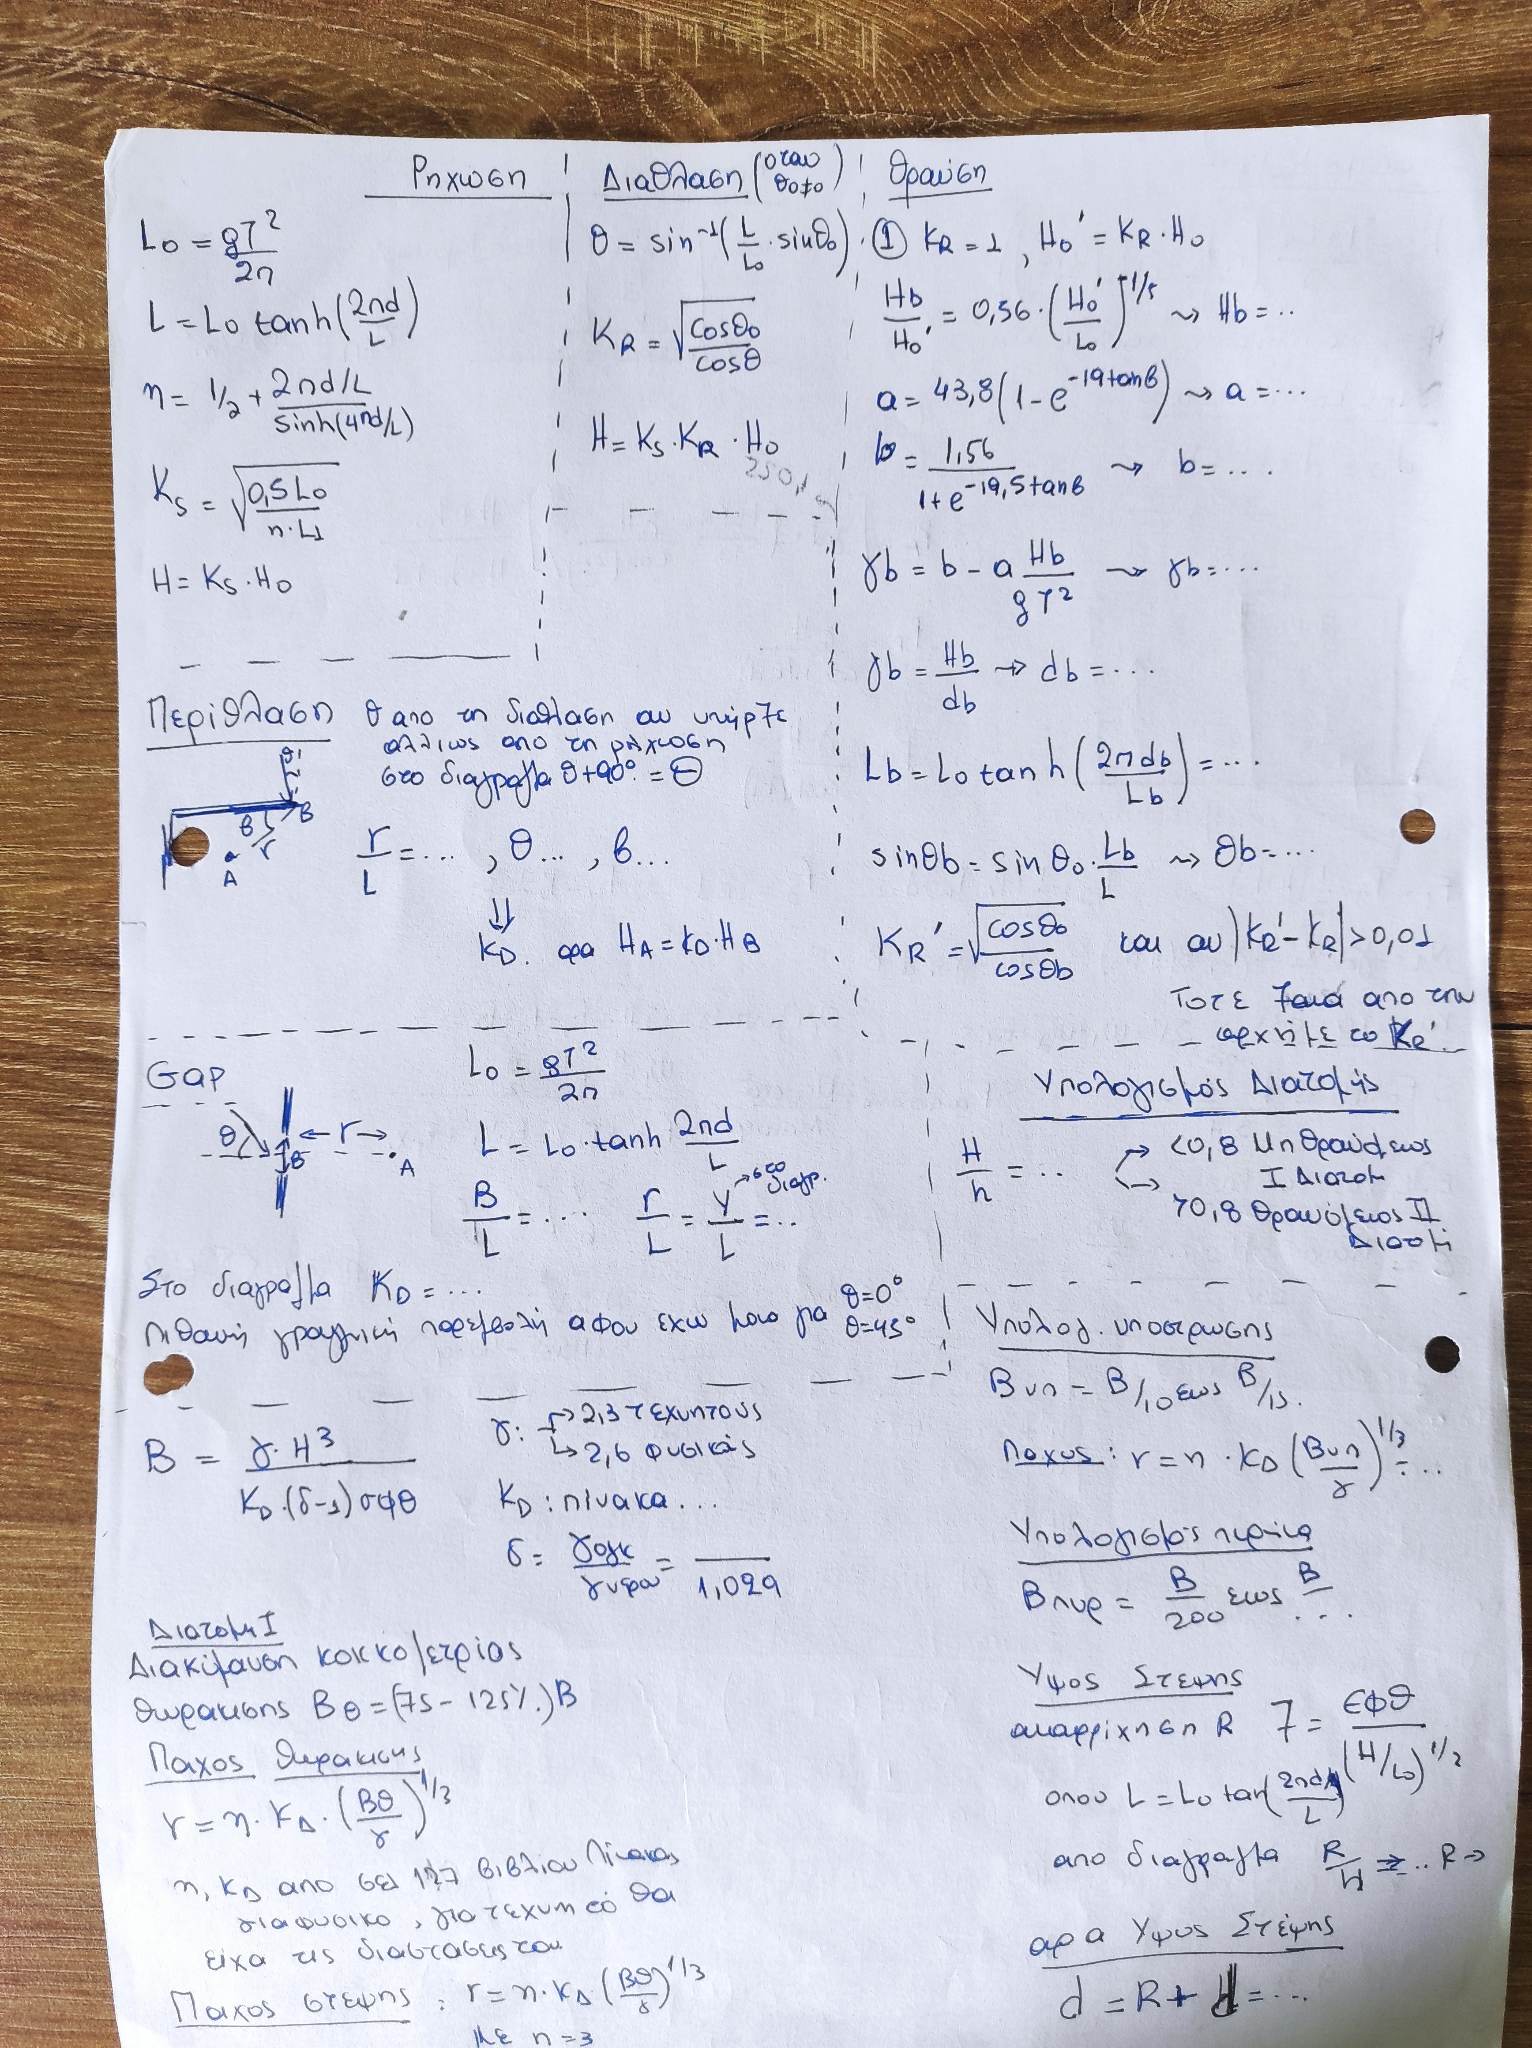 Ρηχωση
Lo = gT²/2π
L = Lo tanh(2πd/L)
n = 1/2 + (2πd/L)/(sinh(4πd/L))
Ks = √(0,5Lo/(n·L1))
H = Ks·Ho
Διαθλαση (οταν θο≠0)
θ = sin⁻¹(L/Lo · sinθo)
KR = √(cosθo/cosθ)
H = Ks·KR·Ho
Θραύση
① KR = 1, Ho' = KR·Ho
Hb/Ho' = 0,56·(Ho'/Lo)^-1/5 ⇝ Hb = ..
a = 43,8(1-e^-19tanβ) ⇝ a = ...
b = 1,56/(1+e^-19,5tanβ) ⇝ b = ....
γb = b - a Hb/gT² ⇝ γb = ...
γb = Hb/db → db = ...
Lb = Lo tanh(2πdb/Lb) = ...
sinθb = sinθo·Lb/L ⇝ θb = ...
KR' = √(cosθo/cosθb) και αν |KR'-KR|>0,01
Τοτε απο την
αρχή με το KR'.
Περίθλαση
θ απο τη διαθλαση αν υπήρξε
αλλιως απο τη ρηχωση
στο διαγραμμα θ+90° = Θ
θ
B
β
r
A
r/L = ..., θ..., β...
⇓
KD. αρα HA = KD·HB
Gap
θ
B
← r →
A
Lo = gT²/2π
L = Lo·tanh 2πd/L
B/L = ... r/L = y/L = .. → στο διαγρ.
Στο διαγραμμα KD = ...
Πιθανή γραμμική παρεμβολή αφου εχω μονο για θ=0° θ=45°
Υπολογισμός Διατομής
H/h = ..
→ <0,8 Μη θραυόμενος
I Διατομ
→ >0,8 Θραυόμενος II
Διατομ
B = γ·H³/(KD·(δ-1)σφθ)
γ: → 2,3 τεχνητούς
↳ 2,6 φυσικός
KD: πίνακα...
δ = γογκ/γνερου = /1,029
Υπολογ. υποστρωσης
Bυπ = B/10 εως B/15.
Παχος: r = n·KΔ(Bυπ/γ)^1/3 = ..
Bπυρ = B/200 εως B/...
Διατομη I
Διακύμανση κοκκομετρίας
θωρακισης Bθ = (75-125%)B
Παχος θωρακισης
r = n·KΔ·(Bθ/γ)^1/3
n, KΔ απο σελ 127 βιβλιου Πίνακας
για φυσικο, για τεχνητό θα
είχα τις διαστάσεις του
Παχος στεψης: r = n·KΔ(Bθ/γ)^1/3
με n = 3
Υψος Στεψης
αναρρίχηση R ξ = εφθ/(H/Lo)^1/2
οπου L = Lo tan(2πd/L)
απο διαγραμμα R/H = .. R →
αρα Υψος Στέψης
d = R + H = ...